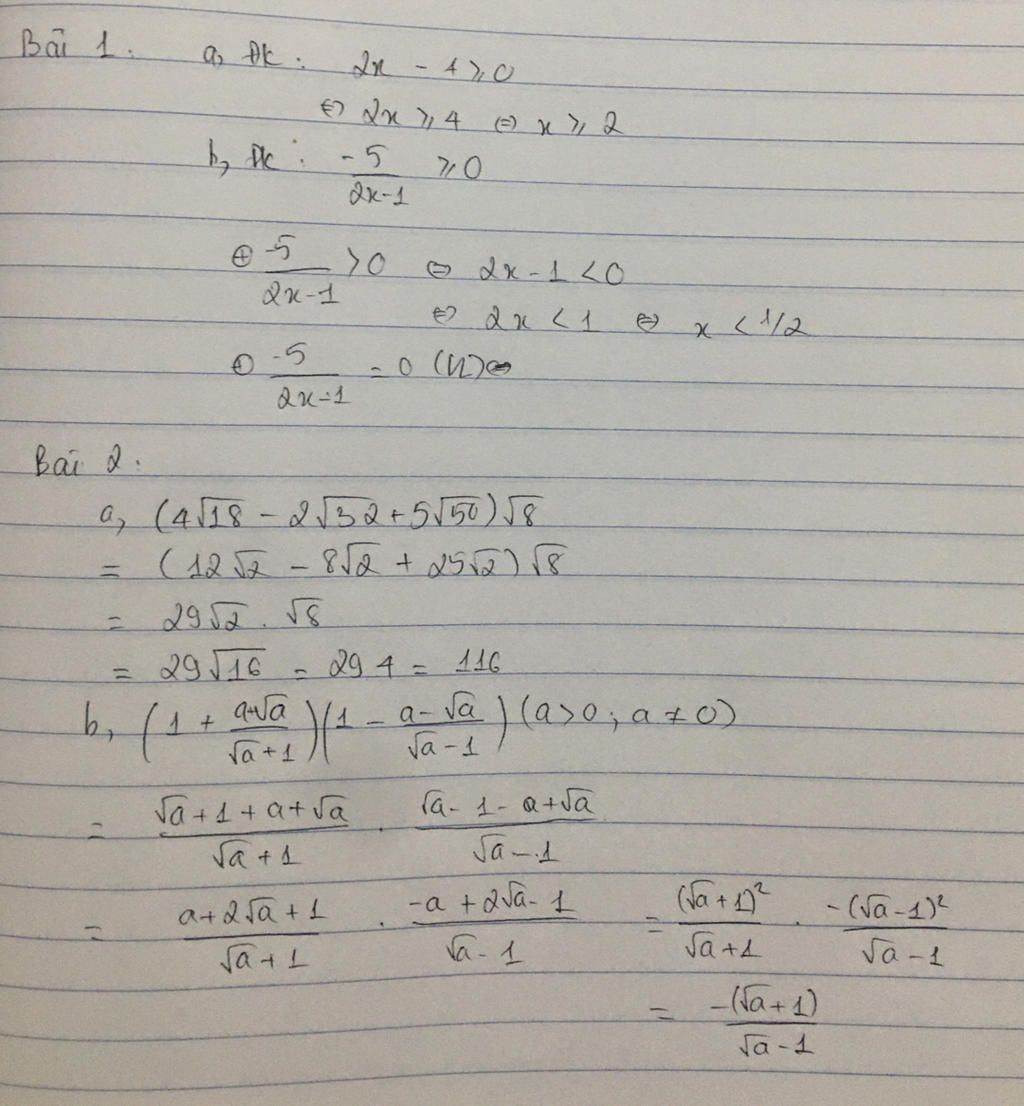 Bài 1: a, Đk: 2x - 4 ≥ 0
⇔ 2x ≥ 4 ⇔ x ≥ 2
b, Đk: -5/(2x-1) ≥ 0
⊕ -5/(2x-1) > 0 ⇔ 2x - 1 < 0
⇔ 2x < 1 ⇔ x < 1/2
⊕ -5/(2x-1) = 0
Bài 2:
a, (4√18 - 2√32 + 5√50)√8
= (12√2 - 8√2 + 25√2)√8
= 29√2 . √8
= 29√16 = 29.4 = 116
b, (1 + (a+√a)/(√a+1))(1 - (a-√a)/(√a-1)) (a>0; a≠0)
= (√a+1+a+√a)/(√a+1) . (√a-1-a+√a)/(√a-1)
= (a+2√a+1)/(√a+1) . (-a+2√a-1)/(√a-1) = (√a+1)²/(√a+1) . -(√a-1)²/(√a-1)
= -(√a+1)/(√a-1)